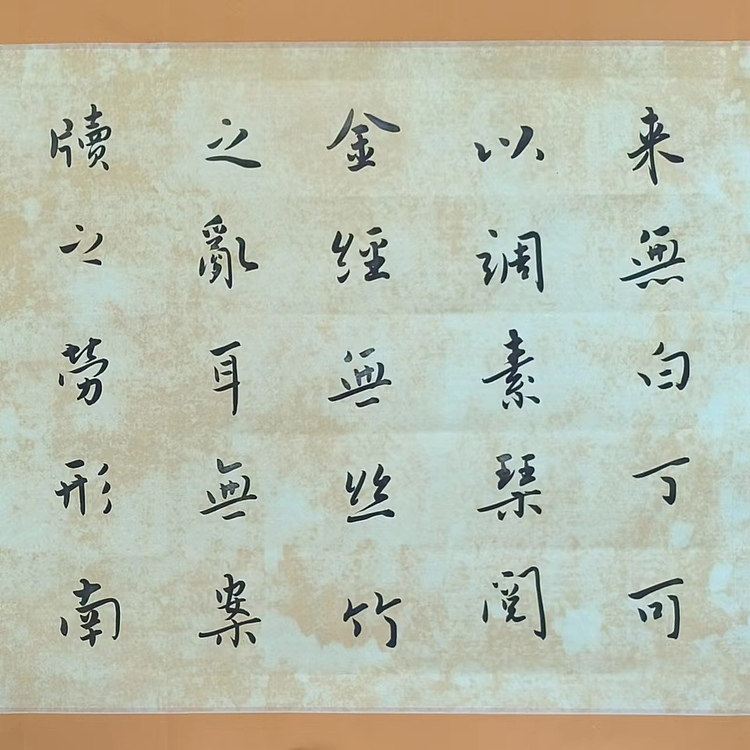 来無白丁可
以調素琴閱
金經無丝竹
之亂耳無案
牘之勞形南